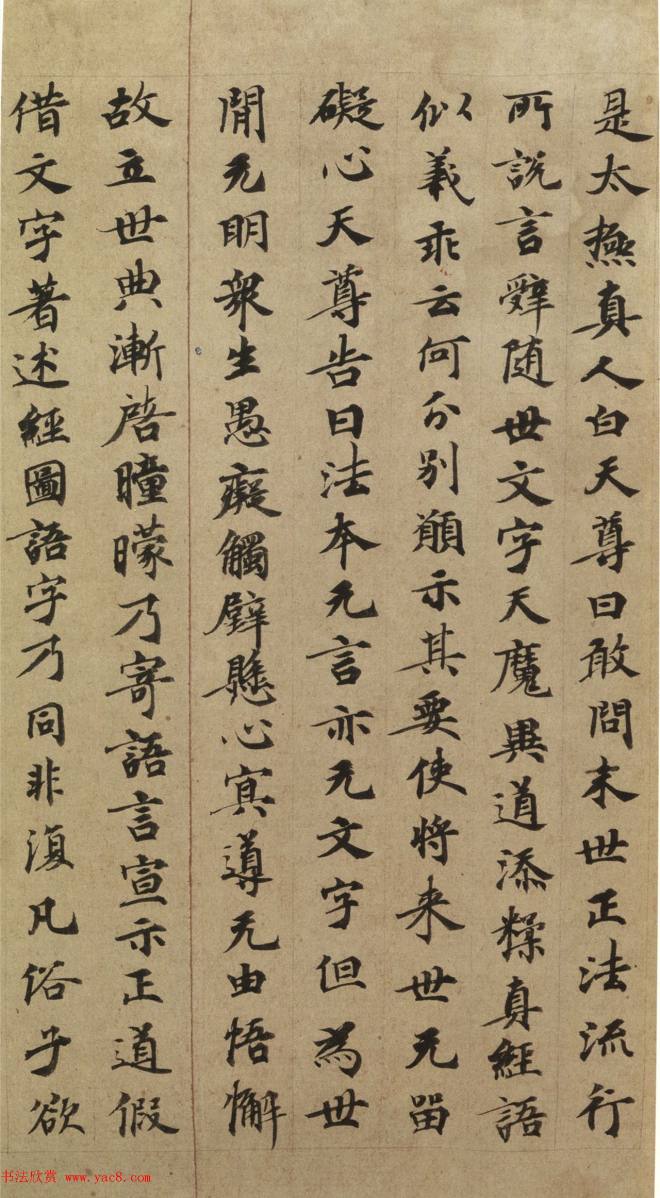 是太極真人白天尊曰敢問末世正法流行
所說言辭隨世文字天魔異道添糅真經語
似義乖云何分别願示其要使將来世无留
礙心天尊告曰法本无言亦无文字但為世
閒无明衆生愚癡觸壁懸心冥導无由悟懈
故立世典漸啓瞳矇乃寄語言宣示正道假
借文字著述經圖語字乃同非復凡俗子欲
书法欣赏 www.yac8.com